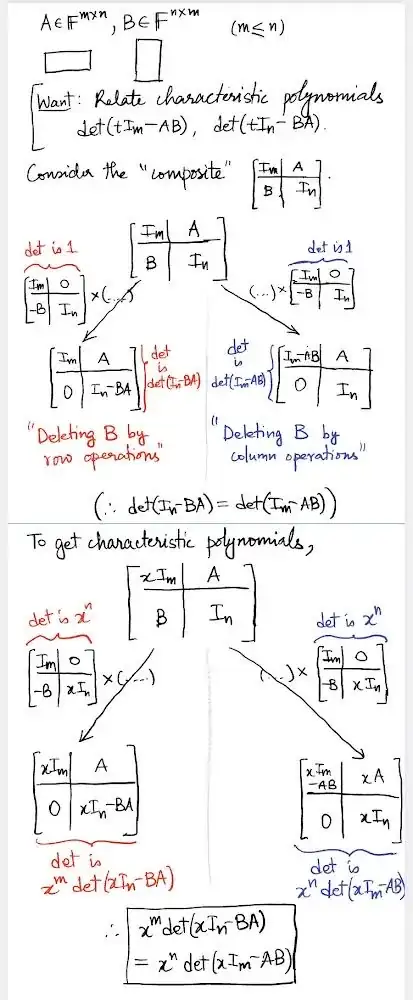 A ∈ F^{m×n}, B ∈ F^{n×m} (m ≤ n)
Want: Relate characteristic polynomials
det(tI_m − AB), det(tI_n − BA).
Consider the "composite" [I_m | A ; B | I_n].
[I_m | A ; B | I_n]
det is 1
[I_m | 0 ; −B | I_n] × (....)
det is 1
(...) × [I_m | 0 ; −B | I_n]
[I_m | A ; 0 | I_n−BA]
det
is
det(I_n−BA)
det
is
det(I_m−AB)
[I_m−AB | A ; 0 | I_n]
"Deleting B by
row operations"
"Deleting B by
column operations"
(∴ det(I_n−BA) = det(I_m−AB))
To get characteristic polynomials,
[xI_m | A ; B | I_n]
det is x^n
[I_m | 0 ; −B | xI_n] × (....)
det is x^n
(...) × [I_m | 0 ; −B | xI_n]
[xI_m | A ; 0 | xI_n−BA]
[xI_m −AB | xA ; 0 | xI_n]
det is
x^m det(xI_n−BA)
det is
x^n det(xI_m−AB)
∴ x^m det(xI_n−BA)
= x^n det(xI_m−AB)